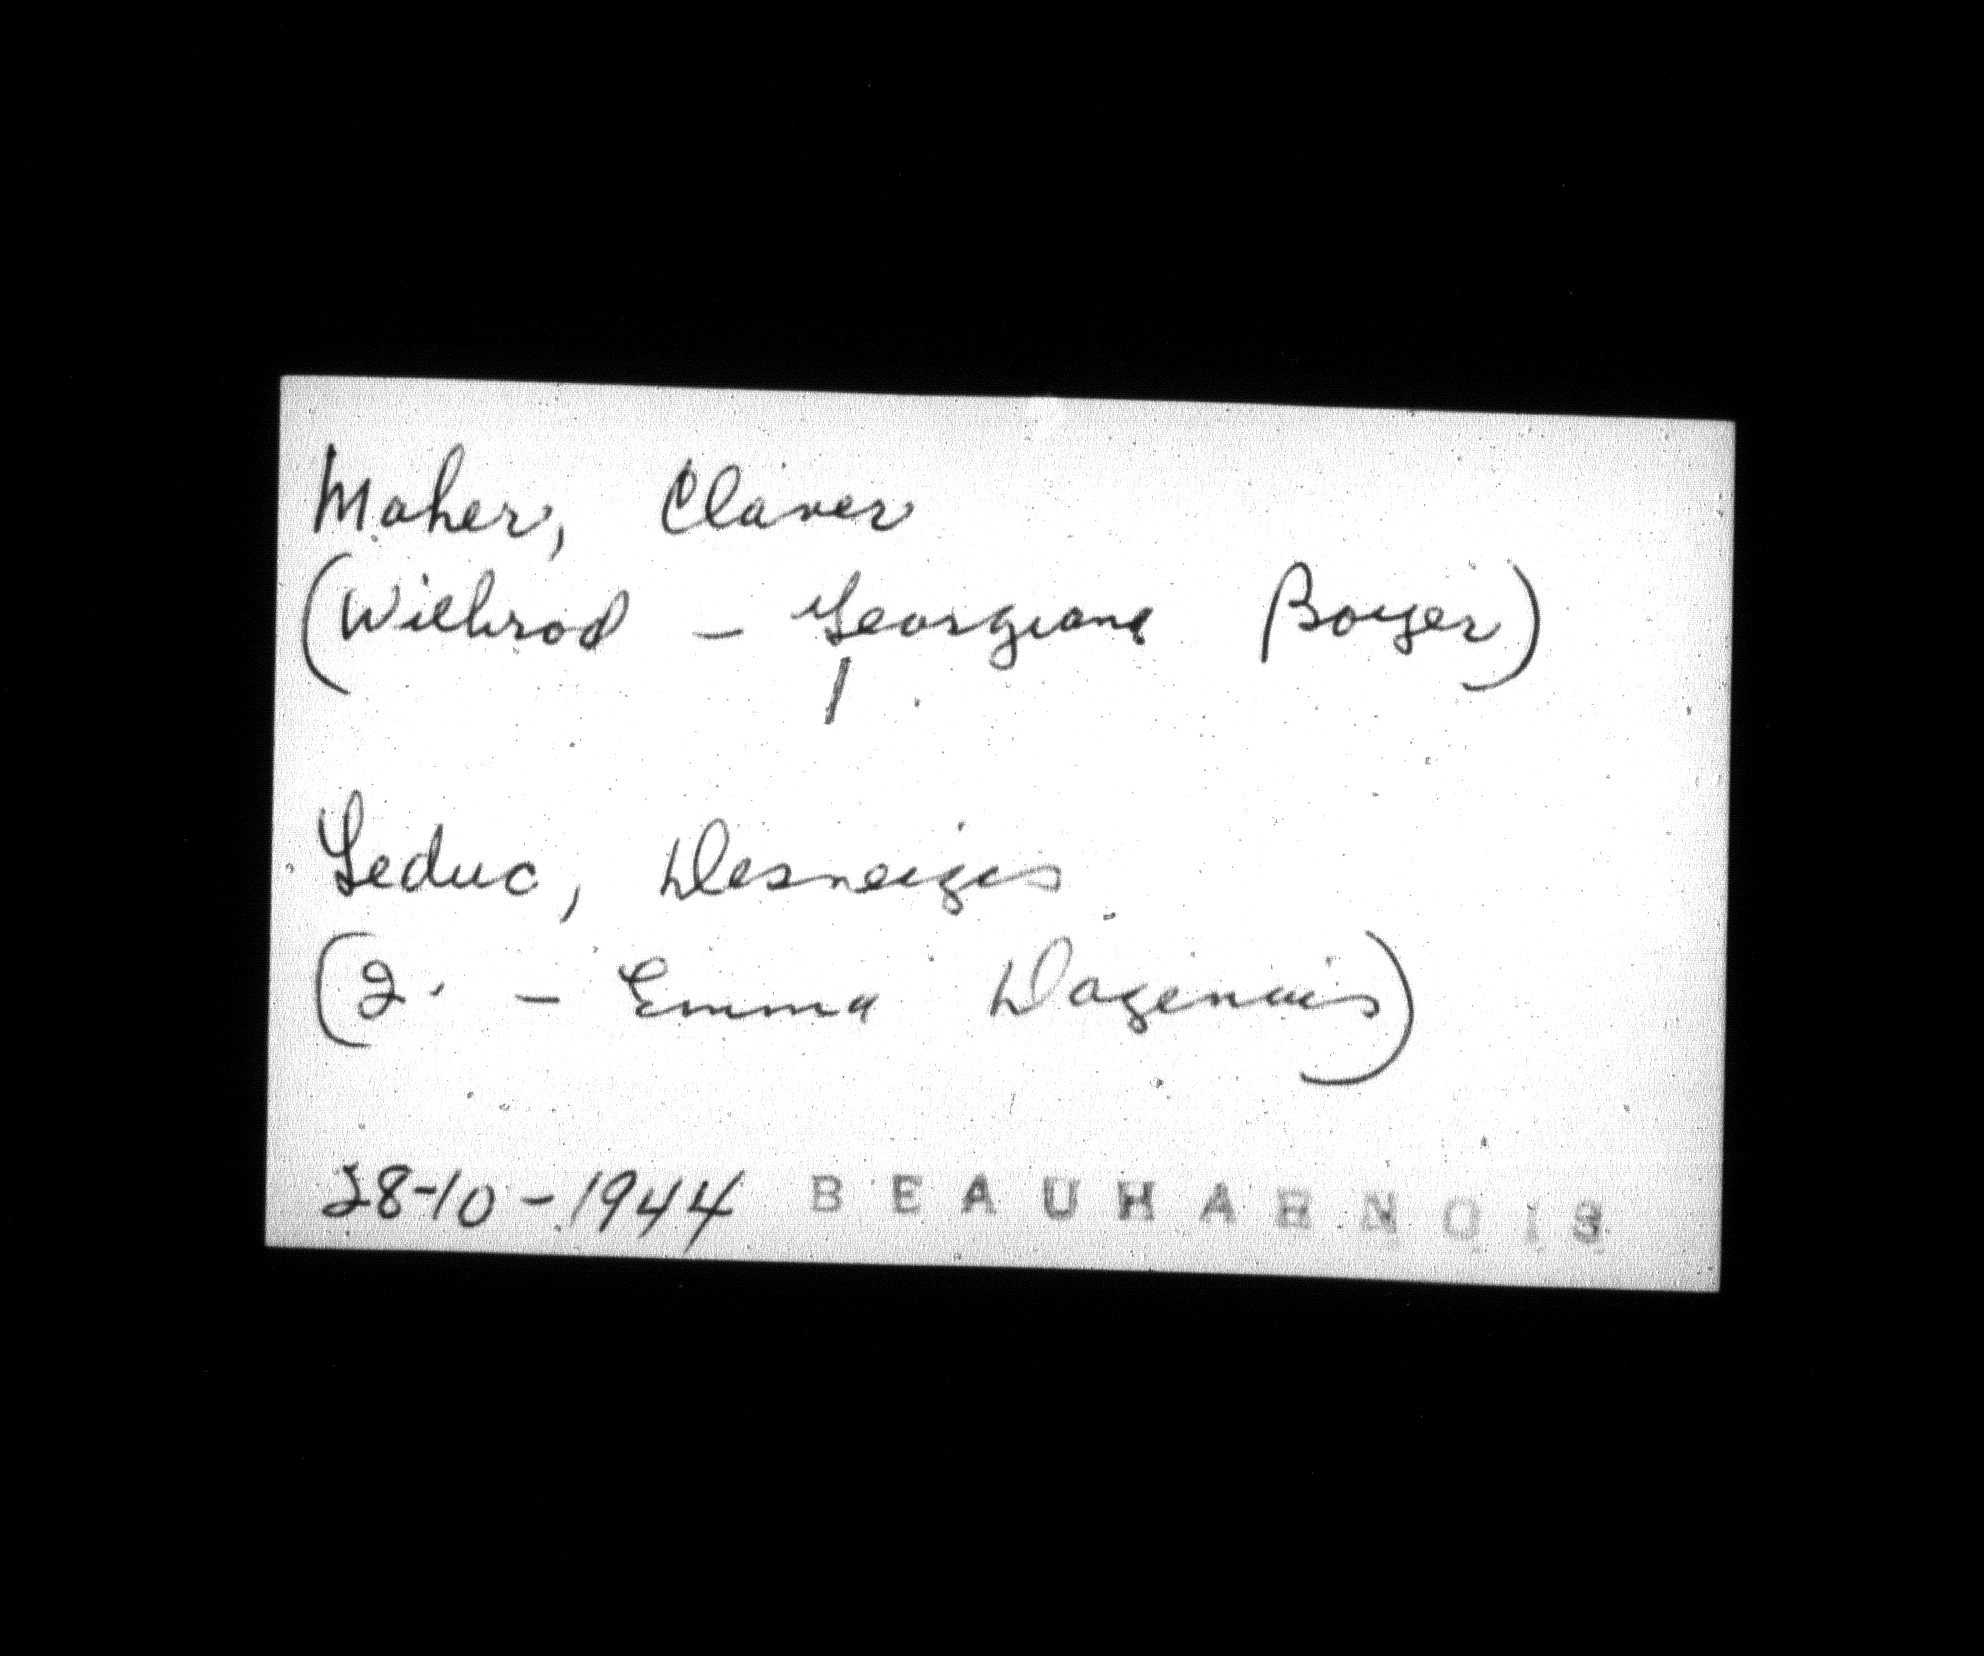 Maher, Claver
(Wilbrod - Georgiana Boyer)
Leduc, Desneiges
(J. - Emma Dagenais)
28-10-1944 BEAUHARNOIS